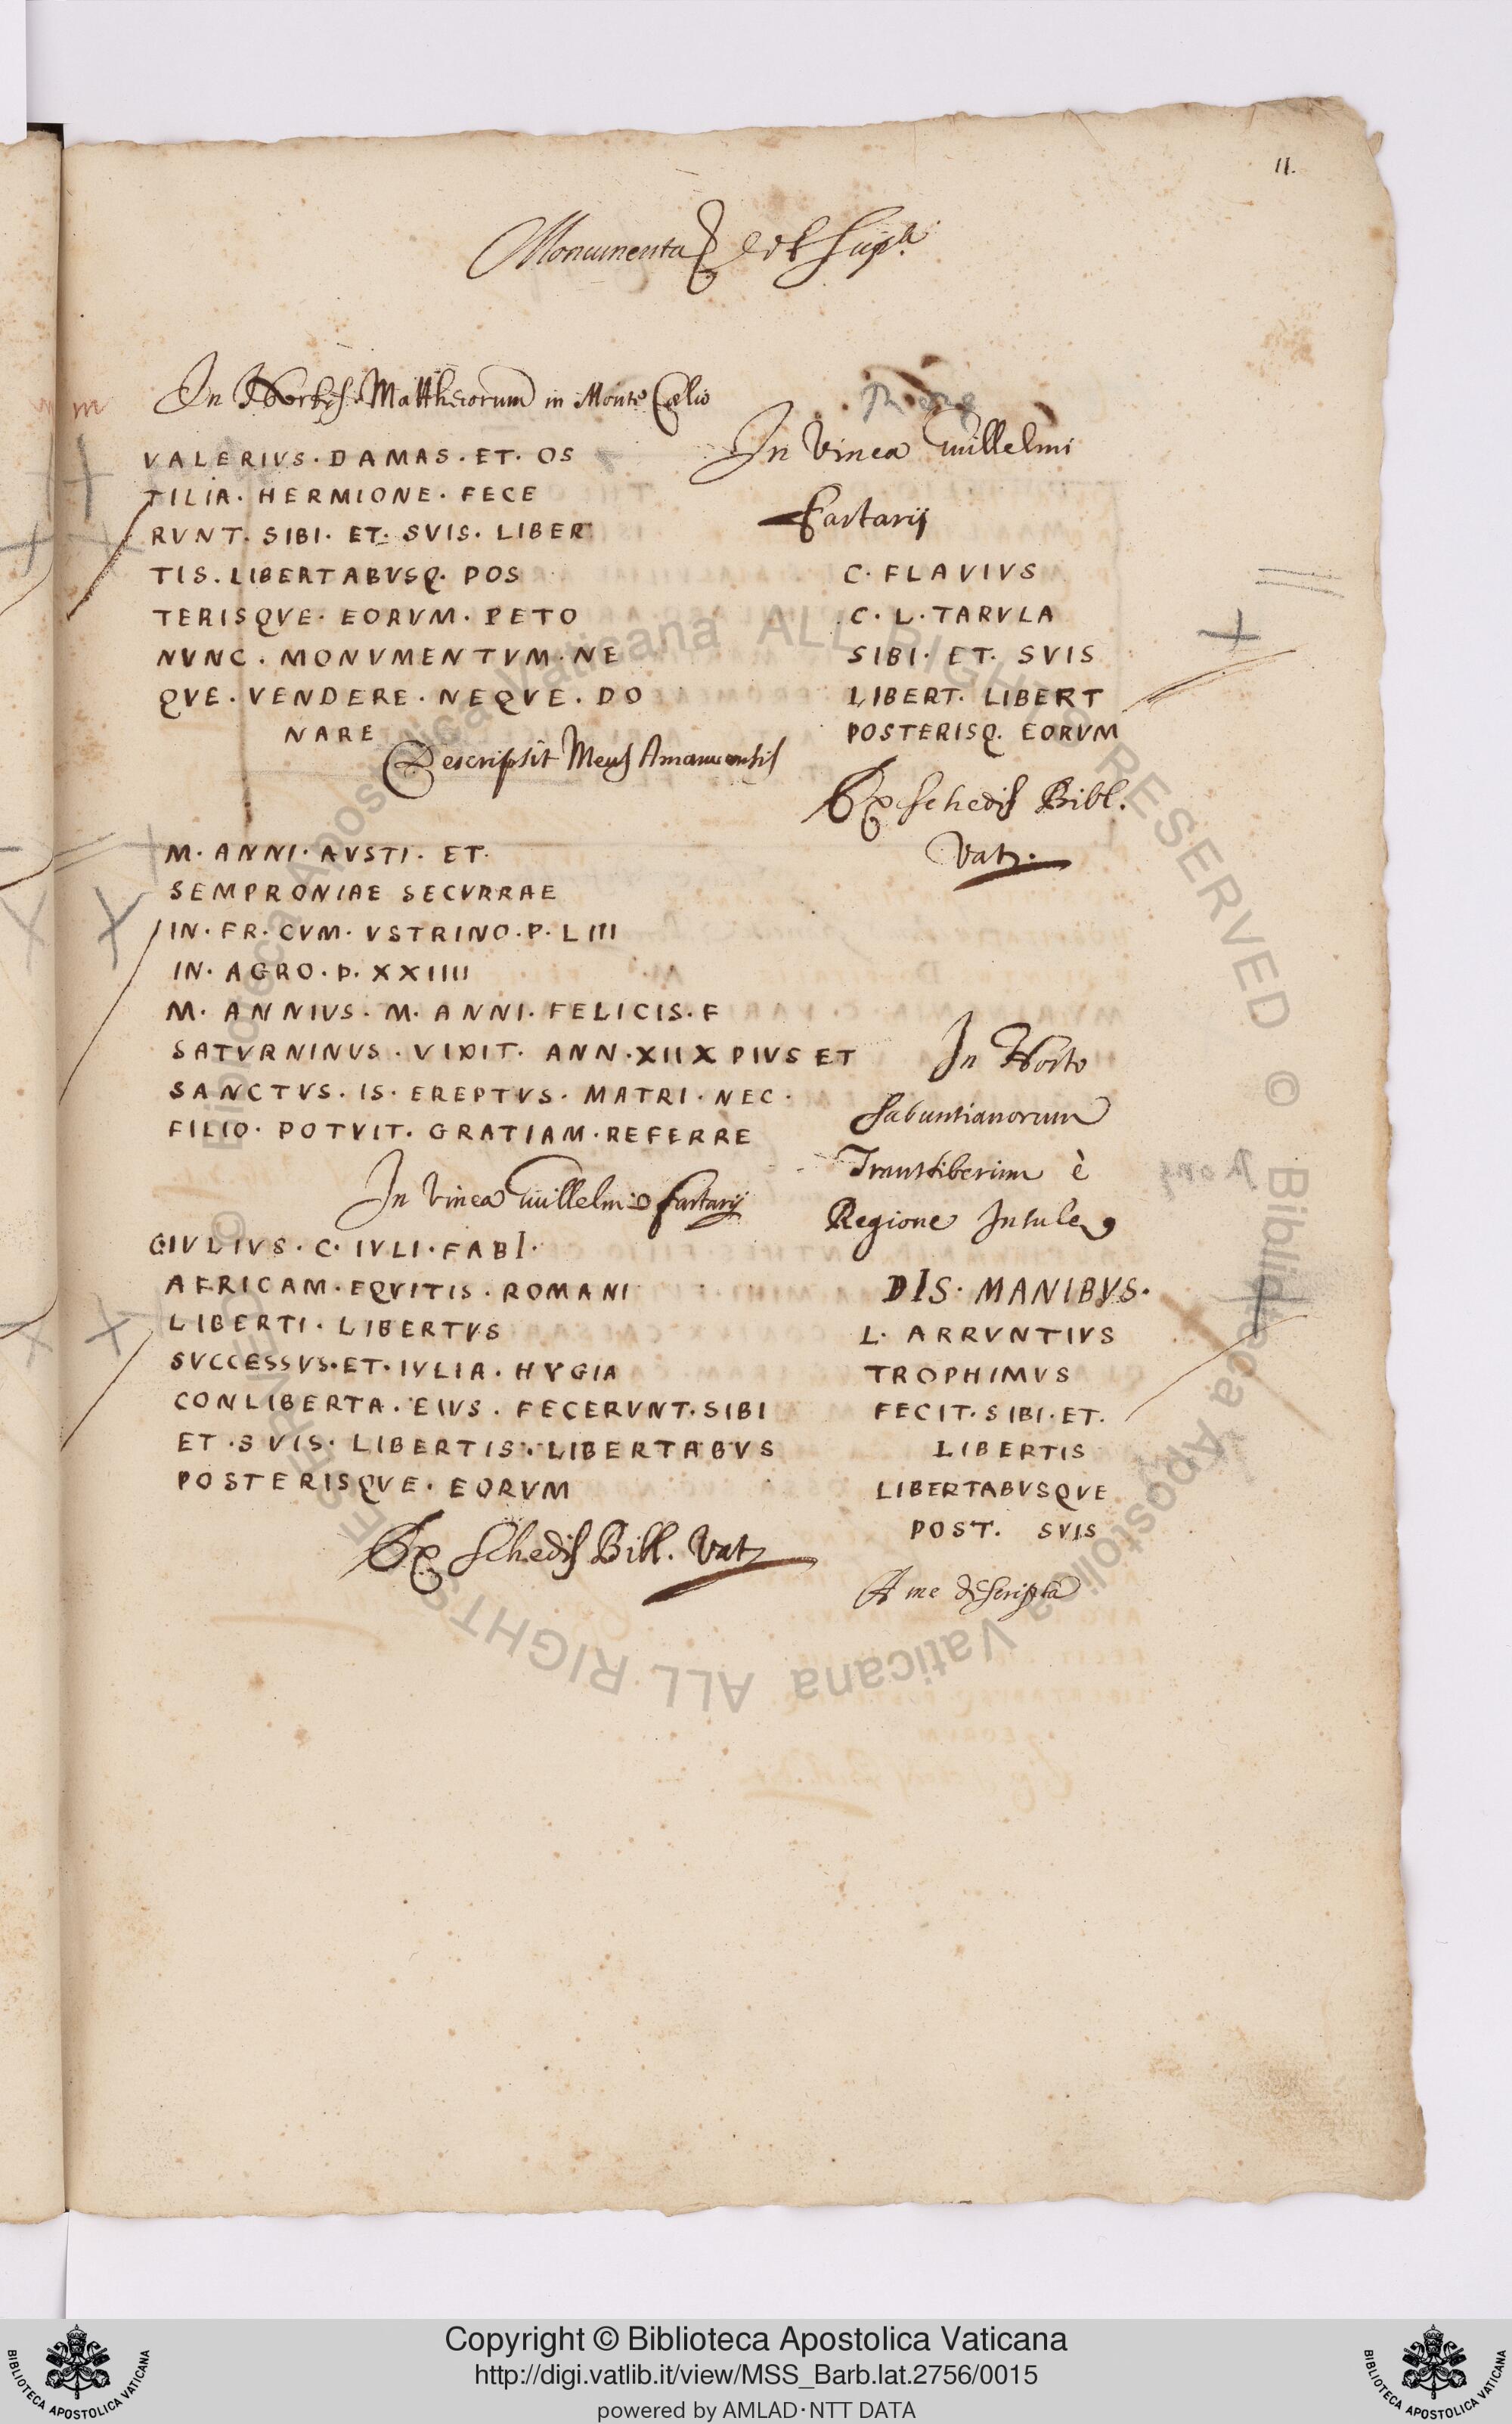 11.
Monumenta
In Hortis Mattheiorum in Monte Cælio
VALERIVS·DAMAS·ET·OS
TILIA·HERMIONE·FECE
RVNT·SIBI·ET·SVIS·LIBER
TIS·LIBERTABVSQ·POS
TERISQVE·EORVM·PETO
NVNC·MONVMENTVM·NE
QVE·VENDERE·NEQVE·DO
NARE
Descripsit Meus Amanuensis
M·ANNI·AVSTI·ET·
SEMPRONIAE SECVRRAE
IN·FR·CVM·VSTRINO·P·LIII
IN·AGRO·P·XXIIII
M·ANNIVS·M·ANNI·FELICIS·F
SATVRNINVS·VIXIT·ANN·XIIX PIVS ET
SANCTVS·IS·EREPTVS·MATRI·NEC·
FILIO·POTVIT·GRATIAM·REFERRE
In Vinea Guillelmi Fartarij
GIVLIVS·C·IVLI·FABI·
AFRICAM·EQVITIS·ROMANI
LIBERTI·LIBERTVS
SVCCESSVS·ET·IVLIA·HYGIA
CONLIBERTA·EIVS·FECERVNT·SIBI
ET·SVIS·LIBERTIS·LIBERTABVS
POSTERISQVE·EORVM
Ex Schedis Bibl. Vat
In Vinea Guillelmi
Fartarij
C·FLAVIVS
C·L·TARVLA
SIBI·ET·SVIS
LIBERT·LIBERT
POSTERISQ·EORVM
Ex Schedis Bibl.
Vat.
In Horto
Sabuntianorum
Transtiberim è
Regione Insule
DIS·MANIBVS·
L·ARRVNTIVS
TROPHIMVS
FECIT·SIBI·ET·
LIBERTIS
LIBERTABVSQVE
POST. SVIS
A me descripta
© Biblioteca Apostolica Vaticana ALL RIGHTS RESERVED © Biblioteca Apostolica Vaticana ALL RIGHTS RESERVED
BIBLIOTECA APOSTOLICA VATICANA
Copyright © Biblioteca Apostolica Vaticana
http://digi.vatlib.it/view/MSS_Barb.lat.2756/0015
powered by AMLAD·NTT DATA
BIBLIOTECA APOSTOLICA VATICANA